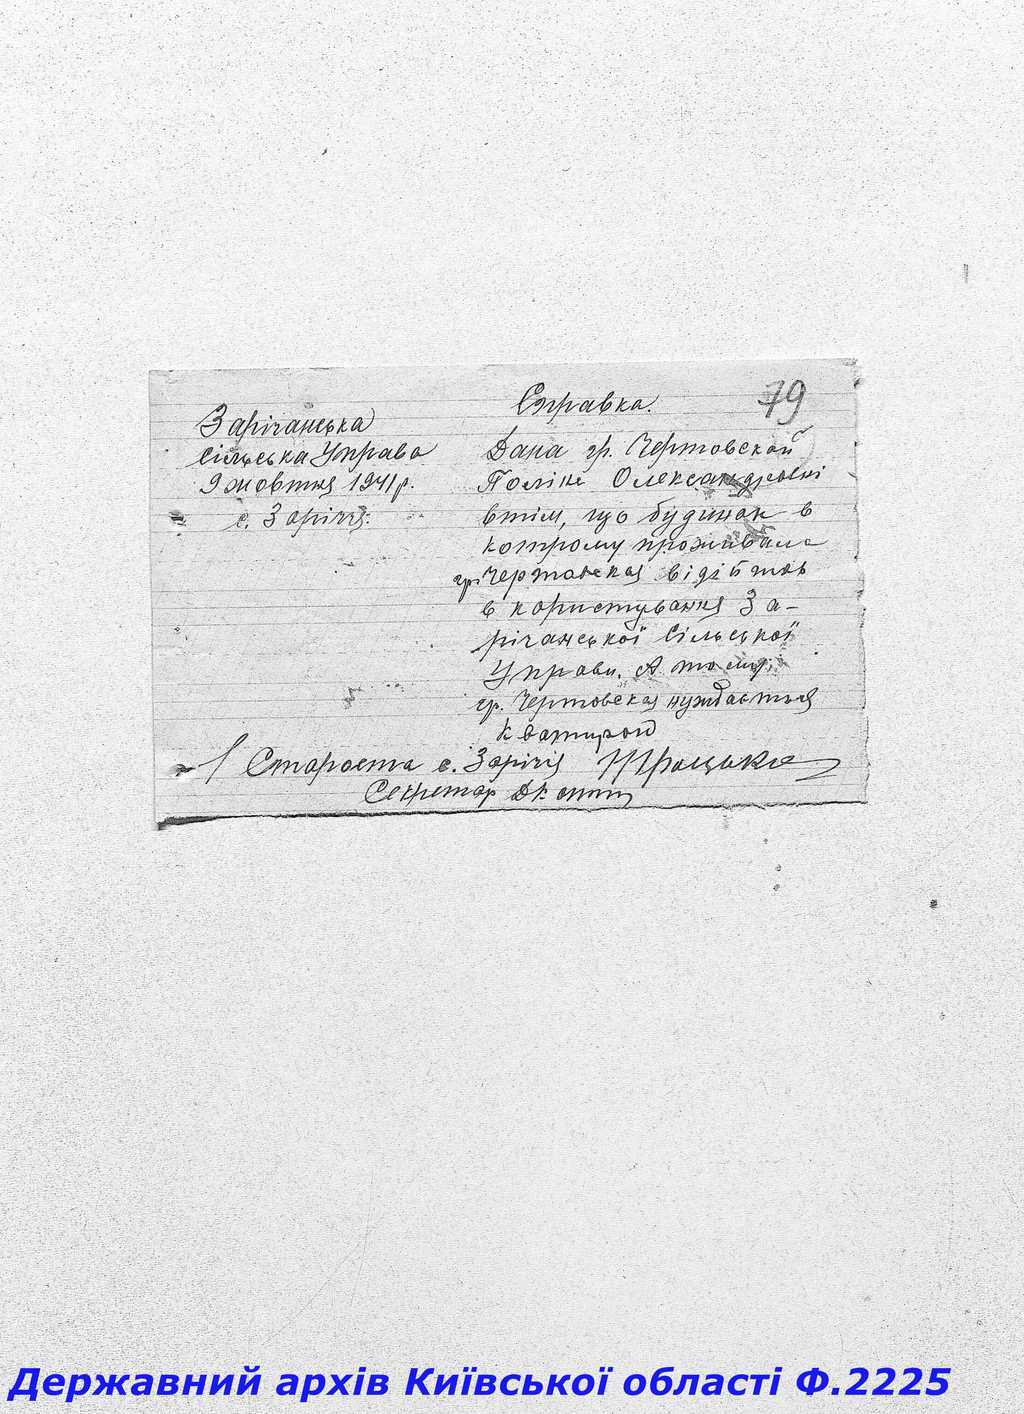 79
Зарічанська
сільська Управа
9 жовтня 1941 р.
с. Заріччя.
Справка.
Дана гр. Чертовской
Поліне Олександровні
втім, що будинок в
котрому проживала
гр. Чертовская відійшов
в користування За-
річанської сільської
Управи. А тому
гр. Чертовская нуждаеться
кватирою
Староста с. Заріччя
Секретар
Державний архів Київської області Ф.2225